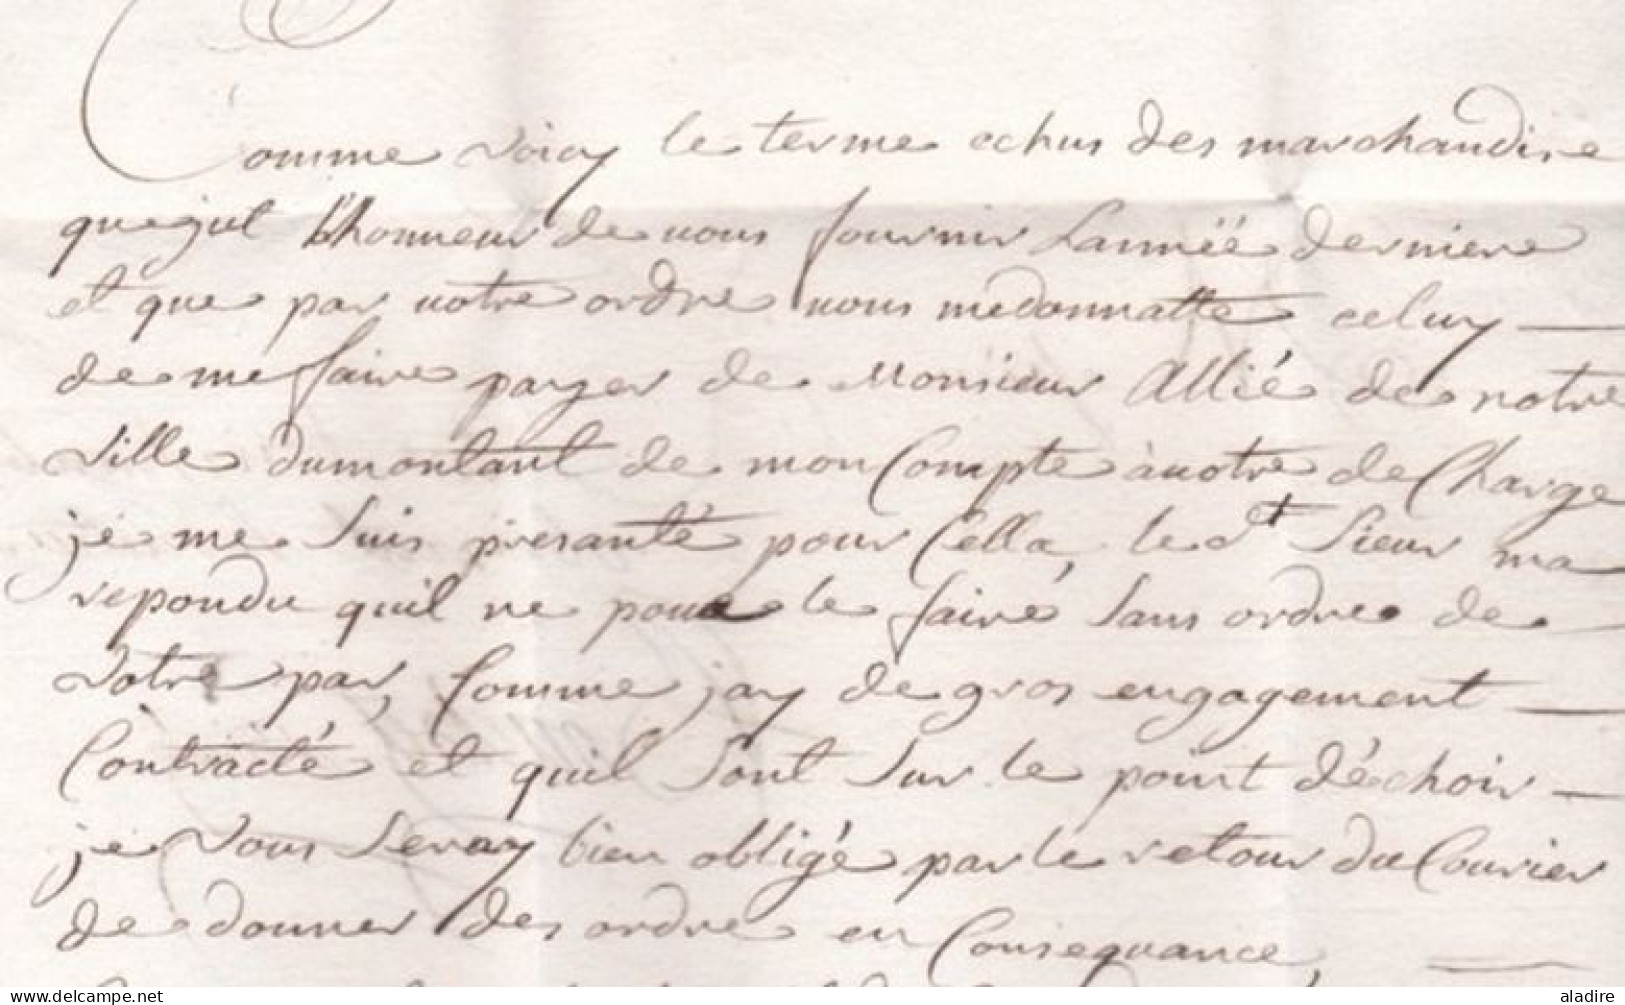 Comme voicy le terme echus des marchandise
quejut lhonneur de vous fournir Lannéé derniere
et que par votre ordre vous medonnatte celuy
de me faire payer de Monsieur Allié de notre
ville dumontant de mon Compte a votre de Charge
je me suis presanté pour Cella, le dt Sieur ma
repondu quil ne pou le faire sans ordre de
votre par, Comme jay de gros engagement
Contracté et quil sont sur le point déchoir
je vous seray bien obligé par le retour du Courier
de donner des ordre en Consequance,
aladire